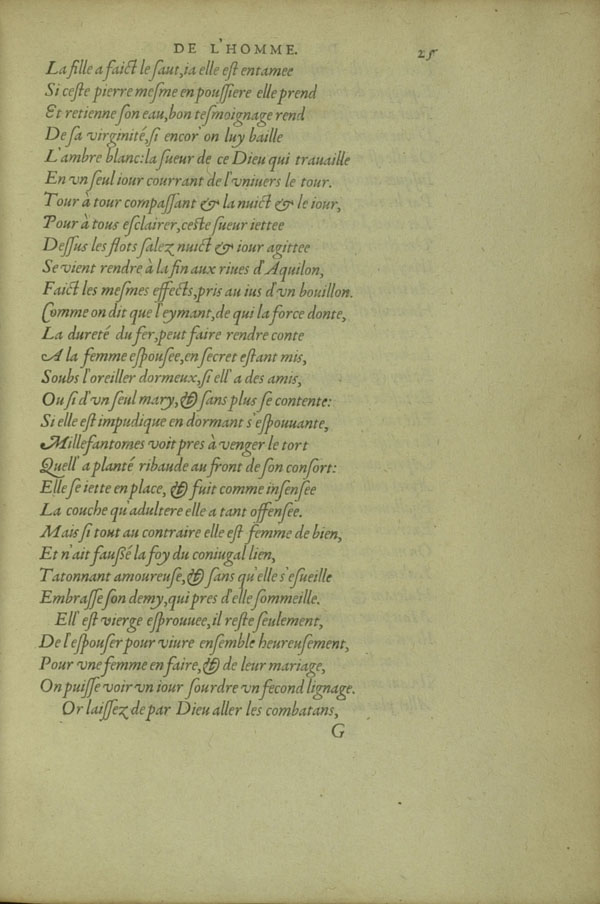 DE L'HOMME. 25
La fille a faict le saut, ia elle est entamee
Si ceste pierre mesme en poussiere elle prend
Et retienne son eau, bon tesmoignage rend
De sa virginité, si encor' on luy baille
L'ambre blanc: la sueur de ce Dieu qui trauaille
En vn seul iour courrant de l'vniuers le tour.
Tour à tour compassant & la nuict & le iour,
Pour à tous esclairer, ceste sueur iettee
Dessus les flots salez nuict & iour agittee
Se vient rendre à la fin aux riues d'Aquilon,
Faict les mesmes effects, pris au ius d'vn bouillon.
Comme on dit que l'eymant, de qui la force donte,
La dureté du fer, peut faire rendre conte
A la femme espousee, en secret estant mis,
Soubs l'oreiller dormeux, si ell' a des amis,
Ou si d'vn seul mary, & sans plus se contente:
Si elle est impudique en dormant s'espouuante,
Mille fantomes voit pres à venger le tort
Quell' a planté ribaude au front de son consort:
Elle se iette en place, & fuit comme insensee
La couche qu'adultere elle a tant offensee.
Mais si tout au contraire elle est femme de bien,
Et n'ait faussé la foy du coniugal lien,
Tatonnant amoureuse, & sans qu'elle s'esueille
Embrasse son demy, qui pres d'elle sommeille.
Ell' est vierge esprouuee, il reste seulement,
De l'espouser pour viure ensemble heureusement,
Pour vne femme en faire, & de leur mariage,
On puisse voir vn iour sourdre vn fecond lignage.
Or laissez de par Dieu aller les combatans,
G